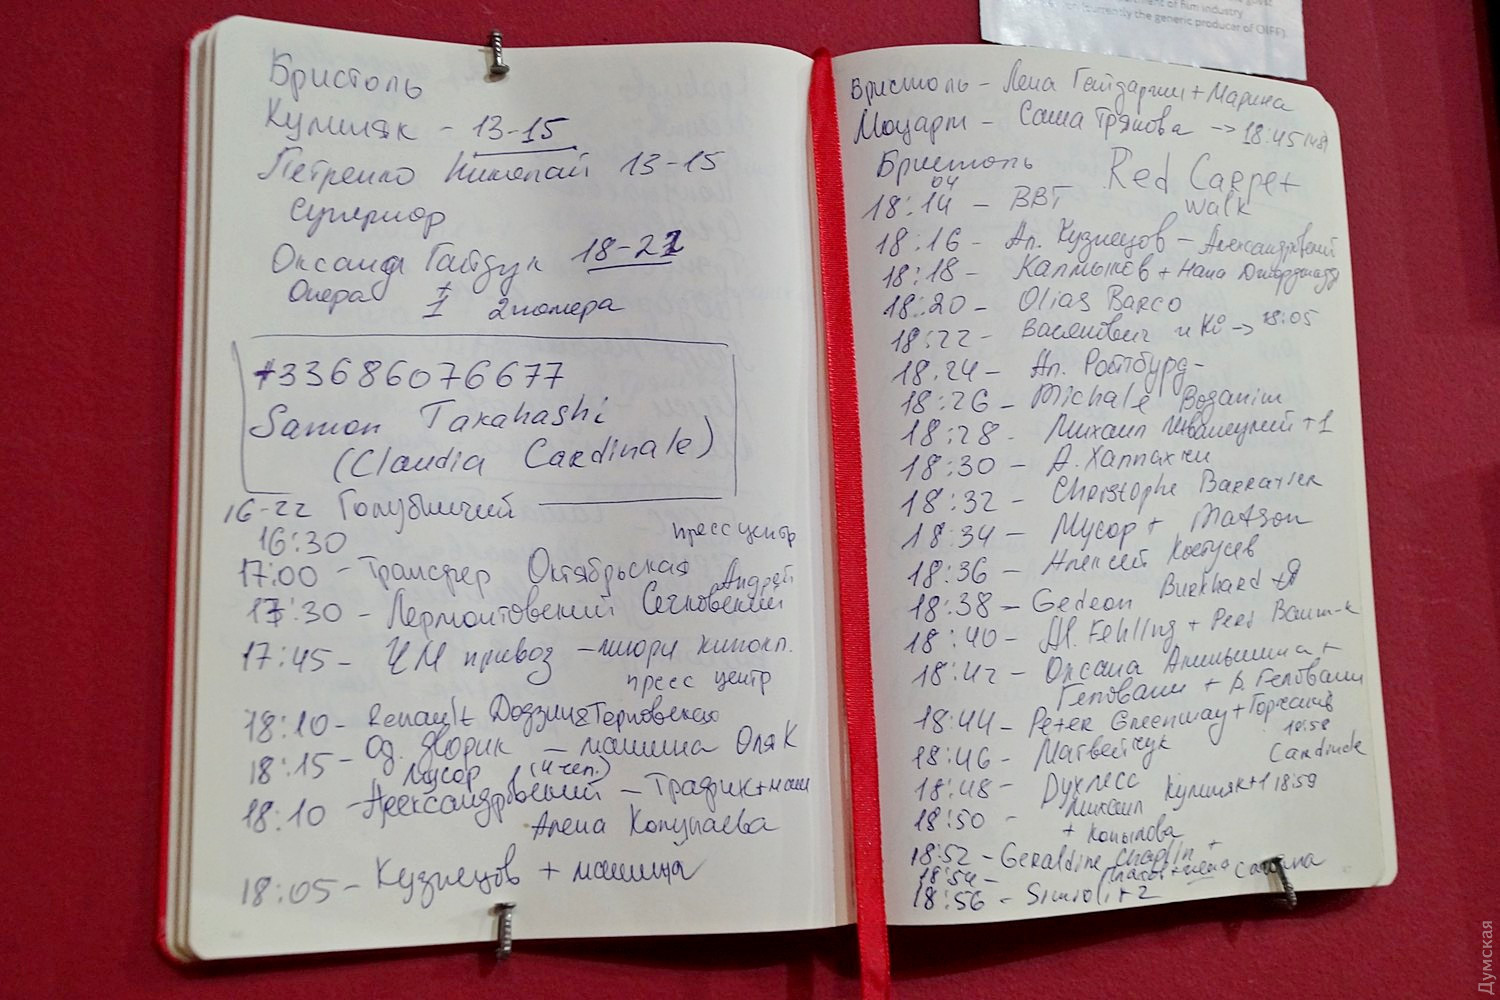 Бристоль
Кулиняк - 13-15
Петренко Николай 13-15
суперпор
Оксана Гайдук 18-21
Опера + 1 2 номера
+33686076677
Samon Takahashi
(Claudia Cardinale)
16-22 Голубничий
16:30 прессцентр
17:00 - Трансфер Октябрьская Андрей
17:30 - Лермонтовский Сечковский
17:45 - ЧМ привоз - жюри кинокл.
пресс центр
18:10 - Renault Дерибас
18:15 - Од. дворик - машина Оля К
Мусор (4 чел.)
18:10 - Александровский - Трафик + маш
Алена Копулаева
18:05 - Кузнецов + машина
of film industry
(currently the generic producer of OIFF).
Бристоль - Лена + Марина
Моцарт - Саша Трякова -> 18:45
Бристоль Red Carpet
18:14 04 - ВВТ walk
18:16 - Ал. Кузнецов - Александровский
18:18 - Калмыков + Нана Джорджадзе
18:20 - Olias Barco
18:22 - Васянович и Ко -> 18:05
18:24 - Ал. Ройтбурд -
18:26 - Michale Boganim
18:28 - Михаил Жванецкий +1
18:30 - А. Хаппахчи
18:32 - Christophe Barratier
18:34 - Мусор + Matson
18:36 - Алексей Костусев
18:38 - Gedeon Burkhard + Я
18:40 - Al. Fehling + Peri Baum-k
18:42 - Оксана +
Геловани + В. Геловани
18:44 - Peter Greenway +
18:46 - Матвейчук 18:58 Cardinale
18:48 - Духлесс
18:50 - Михаил Кулиняк +1 18:59
+ Копылова
18:52 - Geraldine Chaplin +
18:54 -
18:56 - +2
Думская